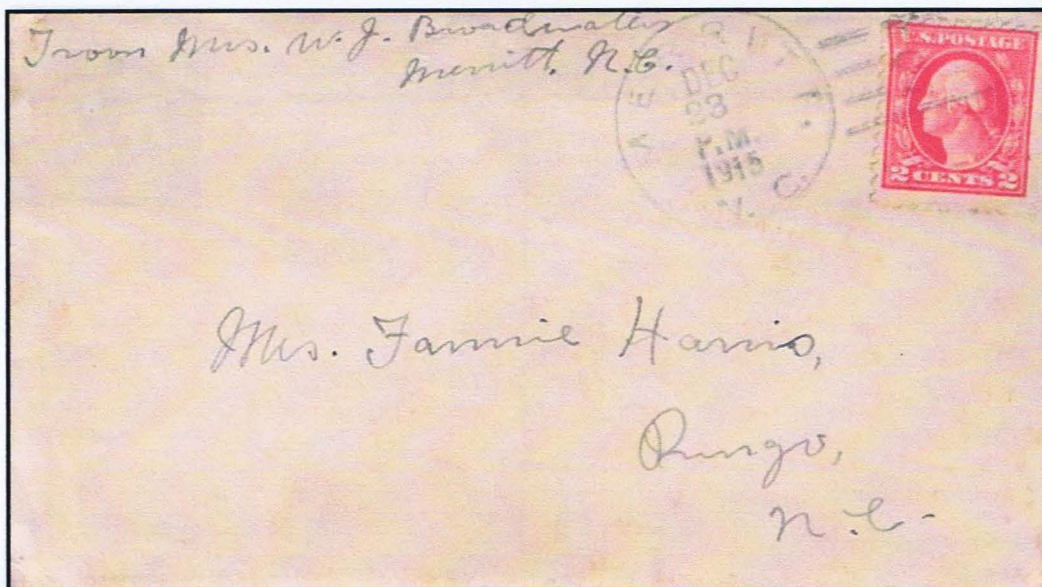 From Mrs. W. J. Broadwater
Merritt, N.C.
MERRITT.
DEC
23
P.M.
1915
N. C.
U.S. POSTAGE
2 CENTS 2
Mrs. Fannie Harris,
Pungo,
N.C.